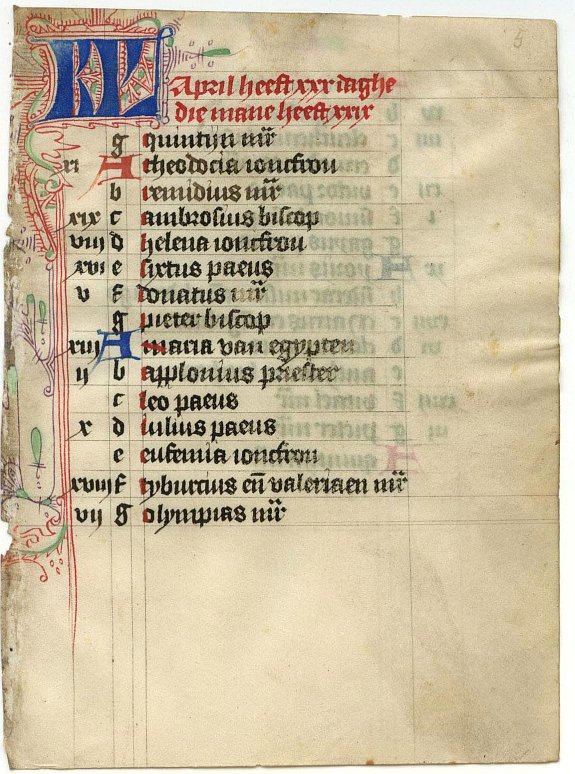 5
KL April heeft xxx daghe
die mane heeft xxix
g quintijn mr
xi A theodocia ioncfrou
b remidius mr
xix c ambrosius biscop
viij d helena ioncfrou
xvi e sixtus paeus
v f donatus mr
g pieter biscop
xiij A maria van egypten
ij b applonius priester
c leo paeus
x d iulius paeus
e eufemia ioncfrou
xviij f tyburcius en̄ valeriaen mr
vij g olympias mr